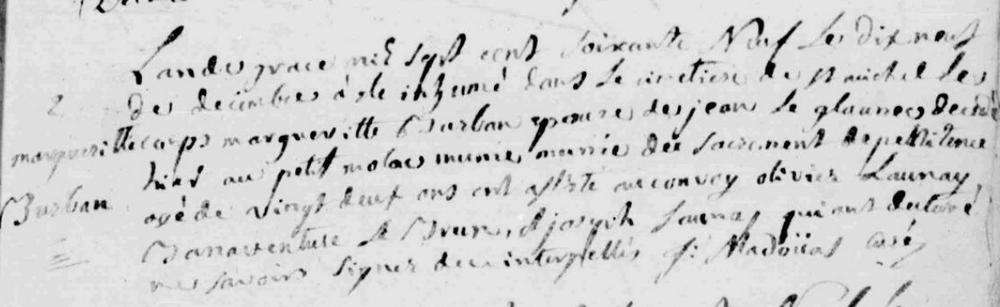 Lan de grace mil sept cent soixante Neuf le dix neuf
2 de decembre à ete inhumé dans le cimetiere de st michel le
margueritte corps margueritte Burban epouse de jean le glaunec decedé
hier au petit molac munie munie des sacrement de penitence
Burban agé de vingt deux ans ont assisté au convoy olivier Launay
Bonaventure Le Brun, et joseph Launay qui ont declaré
ne savoir signer de ce interpellés